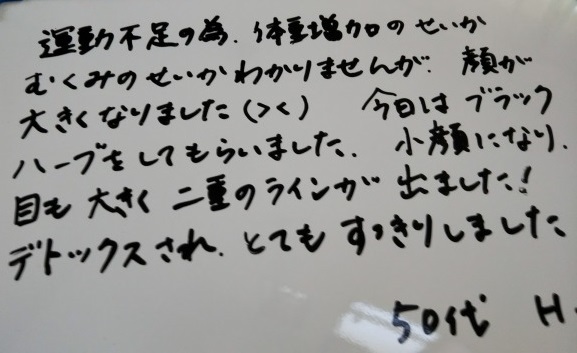 運動不足の為、体重増加のせいか
むくみのせいかわかりませんが、顔が
大きくなりました(><) 今日はブラック
ハーブをしてもらいました、小顔になり、
目も大きく二重のラインが出ました!
デトックスされ、とてもすっきりしました
50代 H.